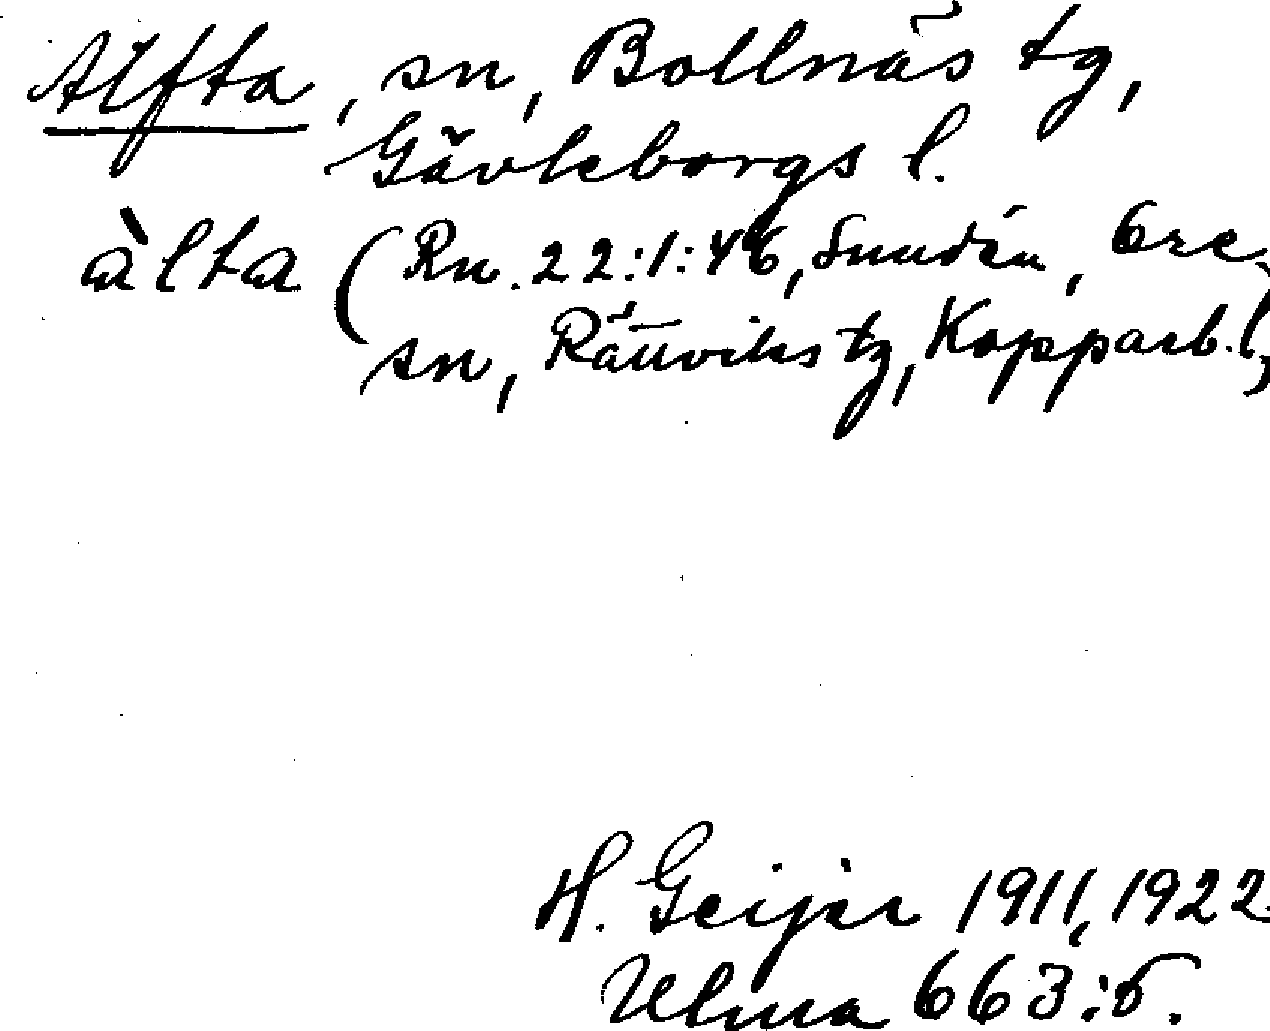 Alfta, sn, Bollnäs tg,
Gävleborgs l.
àlta (Rn. 22:1:46, Sunden, Ore
sn, Rättviks tg, Kopparb. l.)
H. Geijer 1911, 1922.
Ulma 663:5.